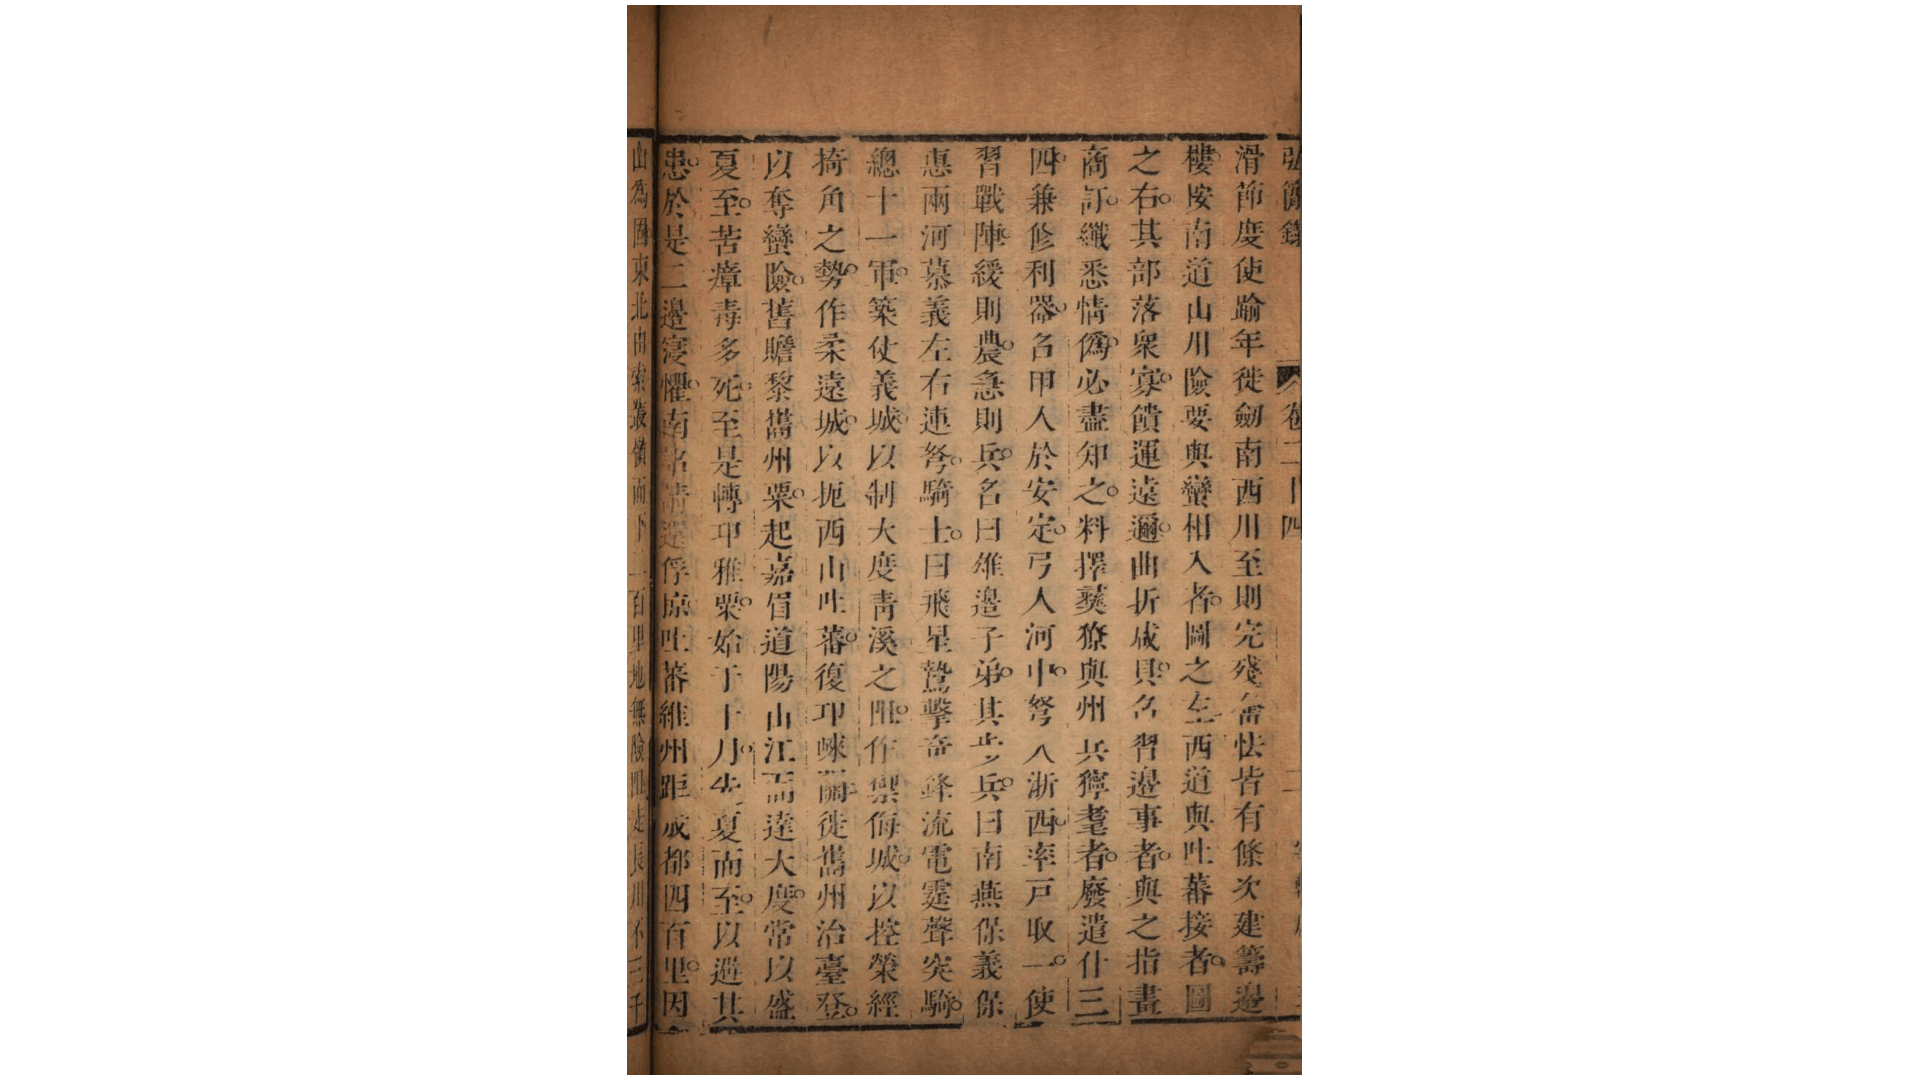 弘簡錄 卷二十四
滑節度使踰年徙劒南西川至則完殘奮怯皆有條次建籌邊
樓按南道山川險要與蠻相入者圖之左西道與吐蕃接者圖
之右其部落衆寡饋運遠邇曲折咸具名習邊事者與之指畫
商訂纖悉情僞必盡知之料擇獠與州兵獰耄者廢遣什三
四兼修利器名甲人於安定弓人河中弩人浙西率戸取一使
習戰陣緩則農急則兵名曰雄邊子弟其步兵曰南燕保義保
惠兩河慕義左右連弩騎士曰飛星鷙擊奇鋒流電霆聲突騎
總十一軍築仗義城以制大度靑溪之阻作禦侮城以控榮經
掎角之勢作柔遠城以扼西山吐蕃復卭崍關徙巂州治臺登
以奪蠻險舊贍黎巂州粟起嘉眉道陽山江而達大度常以盛
夏至苦瘴毒多死至是轉卭雅粟始于十月先夏而至以避其
患於是二邊寖懼南詔請還俘掠吐蕃維州距成都四百里因
山爲固東北由索叢嶺而下二百里地無險阻走長川不三千